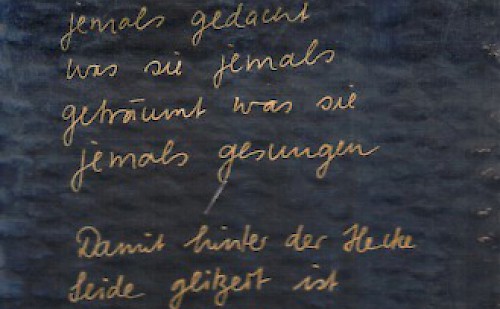 jemals gedacht
was sie jemals
geträumt was sie
jemals gesungen
Damit hinter der Hecke
Seide glitzert ist